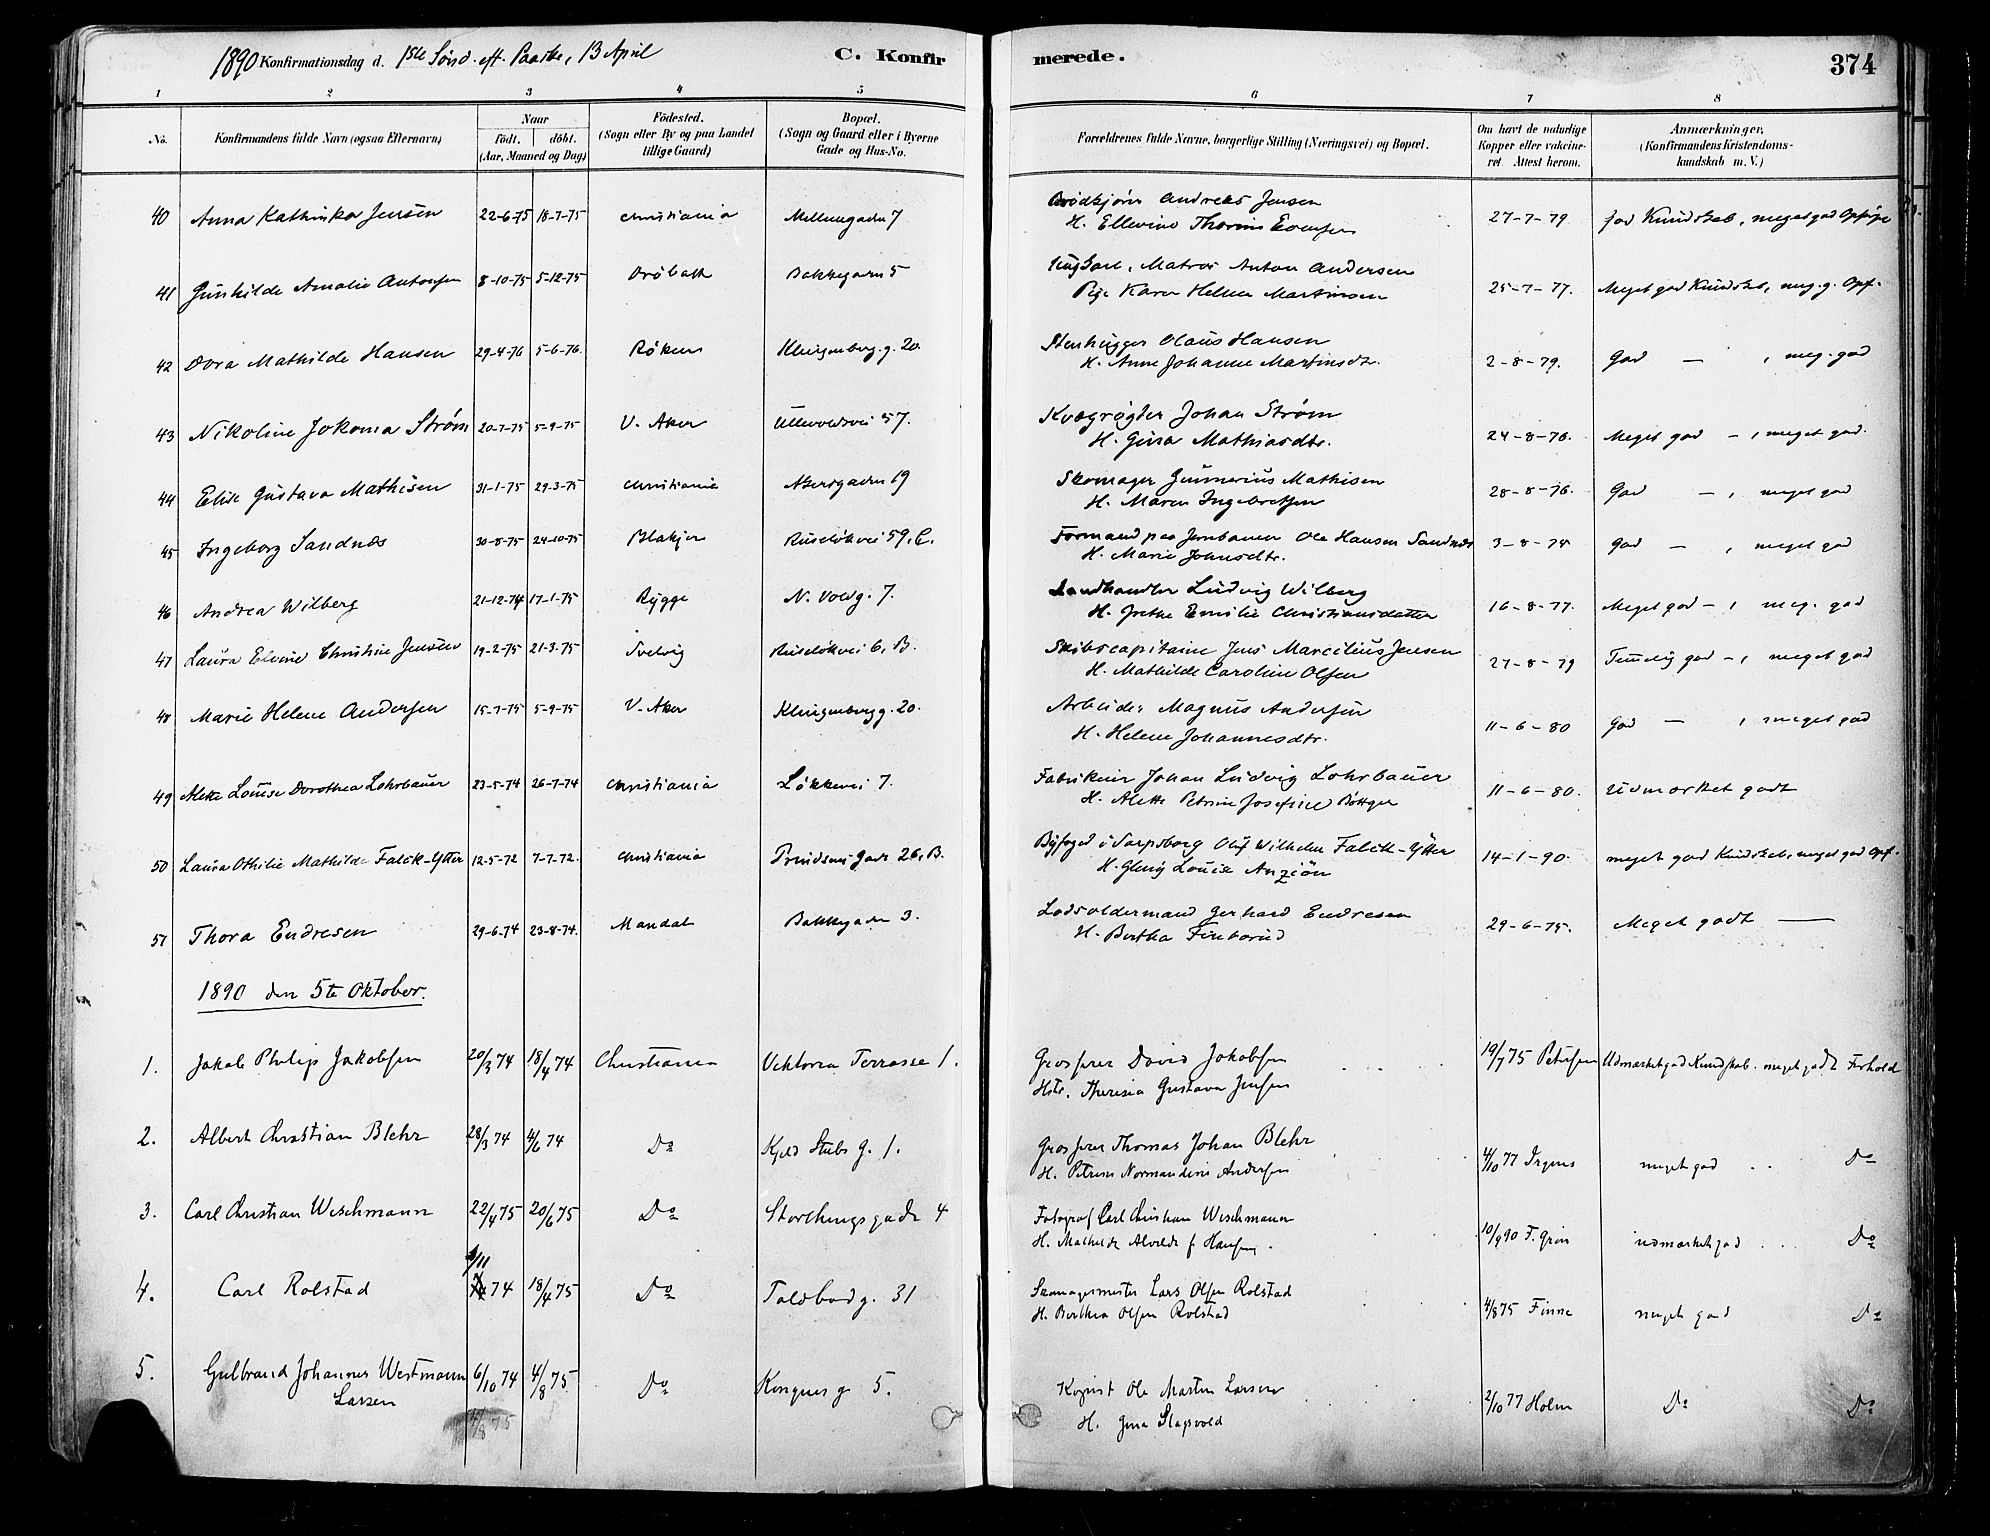 1890 Konfirmationsdag d. 1ste Sönd. eft. Paaske, 13 April
C. Konfirmerede.
374
1 2 3 4 5 6 7 8
No.
Konfirmandens fulde Navn (ogsaa Efternavn)
Naar
födt. döbt.
(Aar, Maaned og Dag)
Födested.
(Sogn eller By og paa Landet
tillige Gaard)
Bopæl.
(Sogn og Gaard eller i Byerne
Gade og Hus-No.
Forældrenes fulde Navne, borgerlige Stilling (Næringsvei) og Bopæl.
Om havt de naturlige
Kopper eller vakcine-
ret. Attest herom.
Anmærkninger,
(Konfirmandens Kristendoms-
kundskab m. V.)
40 Anna Kathinka Jensen 22-6-75 18-7-75 Christiania Möllergaden 7 Andreas Jensen 27-7-79 god Kundskab, meget god
H. Ellevine
41 Gunhilde Amalie Antonsen 8-10-75 5-12-75 Dröbak Bakkegaden 5 Ungkarl, Matros Anton Andersen 25-7-77. Meget god Kundskab, meg. g. Opf.
Pige Karen Helene Martinsen
42 Dora Mathilde Hansen 29-4-76 5-6-76. Röken Klingenberg.g. 20. Stenhugger Olaus Hansen 2-8-79. God — , meg. god
H. Anne Johanne Martinsdtr.
43 Nikoline Jokoma Strøm 20-7-75 5-9-75 V. Aker Ullevoldsvei 57. Kvægrögter Johan Strøm 24-8-76. Meget god — , meget god.
H. Gina Mathiasdtr.
44 Elise Gustava Mathisen 31-1-75 29-3-75 Christiania Akersgaden 19 Skomager Gunnerius Mathisen 28-8-76. God — , meget god
H. Maren Ingebretsen
45 Ingeborg Sandnæs 30-8-75 24-10-75 Blakjer Ruselökvei 59, C. Formand paa Jernbanen Ole Hansen Sandnæs 3-8-78 God — , meget god
H. Marie Johnsdtr.
46 Andrea Wilberg 21-12-74 17-1-75 Rygge N. Voldg. 7. Landhandler Ludvig Wilberg 16-8-77. Meget god — , meg. god
H. Grethe Emilie Christiansdatter
47 Laura Elvine Christine Jensen 19-2-75 21-3-75 Svelvig Ruselökvei 6, B. Skibscapitaine Jens Marcilius Jensen 27-8-79 Temmelig god — , meget god
H. Mathilde Caroline Olsen
48 Marie Helene Andersen 15-7-75 5-9-75 V. Aker Klingenbergg. 20. Arbeider Magnus Andersen 11-6-80 God — , meget god
H. Helene Johannesdtr.
49 Alette Louise Dorothea Lohrbauer 23-5-74 26-7-74 Christiania Lökkevei 7. Fabrikeier Johan Ludvig Lohrbauer 11-6-80. Udmærket godt
H. Alette Petrine Josefine Böttger
50 Laura Othilie Mathilde Falck-Ytter 12-5-72 7-7-72. Christiania Prindsens Gade 26, B. Byfoged i Sarpsborg Oluf Wilhelm Falck-Ytter 14-1-90. meget god Kundskab, meget god Opf.
H. Louise
51 Thora Endresen 29-6-74 23-8-74. Mandal Bakkegaden 3. Lodsoldermand Gerhard Endresen 29-6-75. Meget godt —
H. Bertha
1890 den 5te Oktober.
1. Jakob Philip Jakobsen 20/3 74 18/4 74 Christiania Viktoria Terrasse 1. Grosserer David Jakobsen 19/7 75 Petersen Udmærket god Kundskab. meget godt Forhold
Hstr. Theresia Gustava Jensen
2. Albert Christian Blehr 28/3 74 4/6 74 Do Kjeld Stubs G. 1. Grosserer Thomas Johan Blehr 4/10 77 Irgens meget god Do
H. Petrine Normandine Andersen
3. Carl Christian Wischmann 22/4 75 20/6 75 Do Storthingsgade 4 Fotograf Carl Christian Wischmann 10/9 90 F. Grön udmærket god Do
H. Mathilde Alvilde f. Hansen.
4. Carl Rolstad 1/11 74 18/4 75 Do Toldbodg. 31 Skomagermester Lars Olsen Rolstad 4/8 75 Finne meget god Do
H. Berthea Olsen Rolstad
5. Gulbrand Johannes Westmann 6/10 74 4/8 75 Do Kongens g 5. Kopist Ole Martin Larsen 2/10 77 Holm Do Do
Larsen H. Gina Slapvold
4/8 75